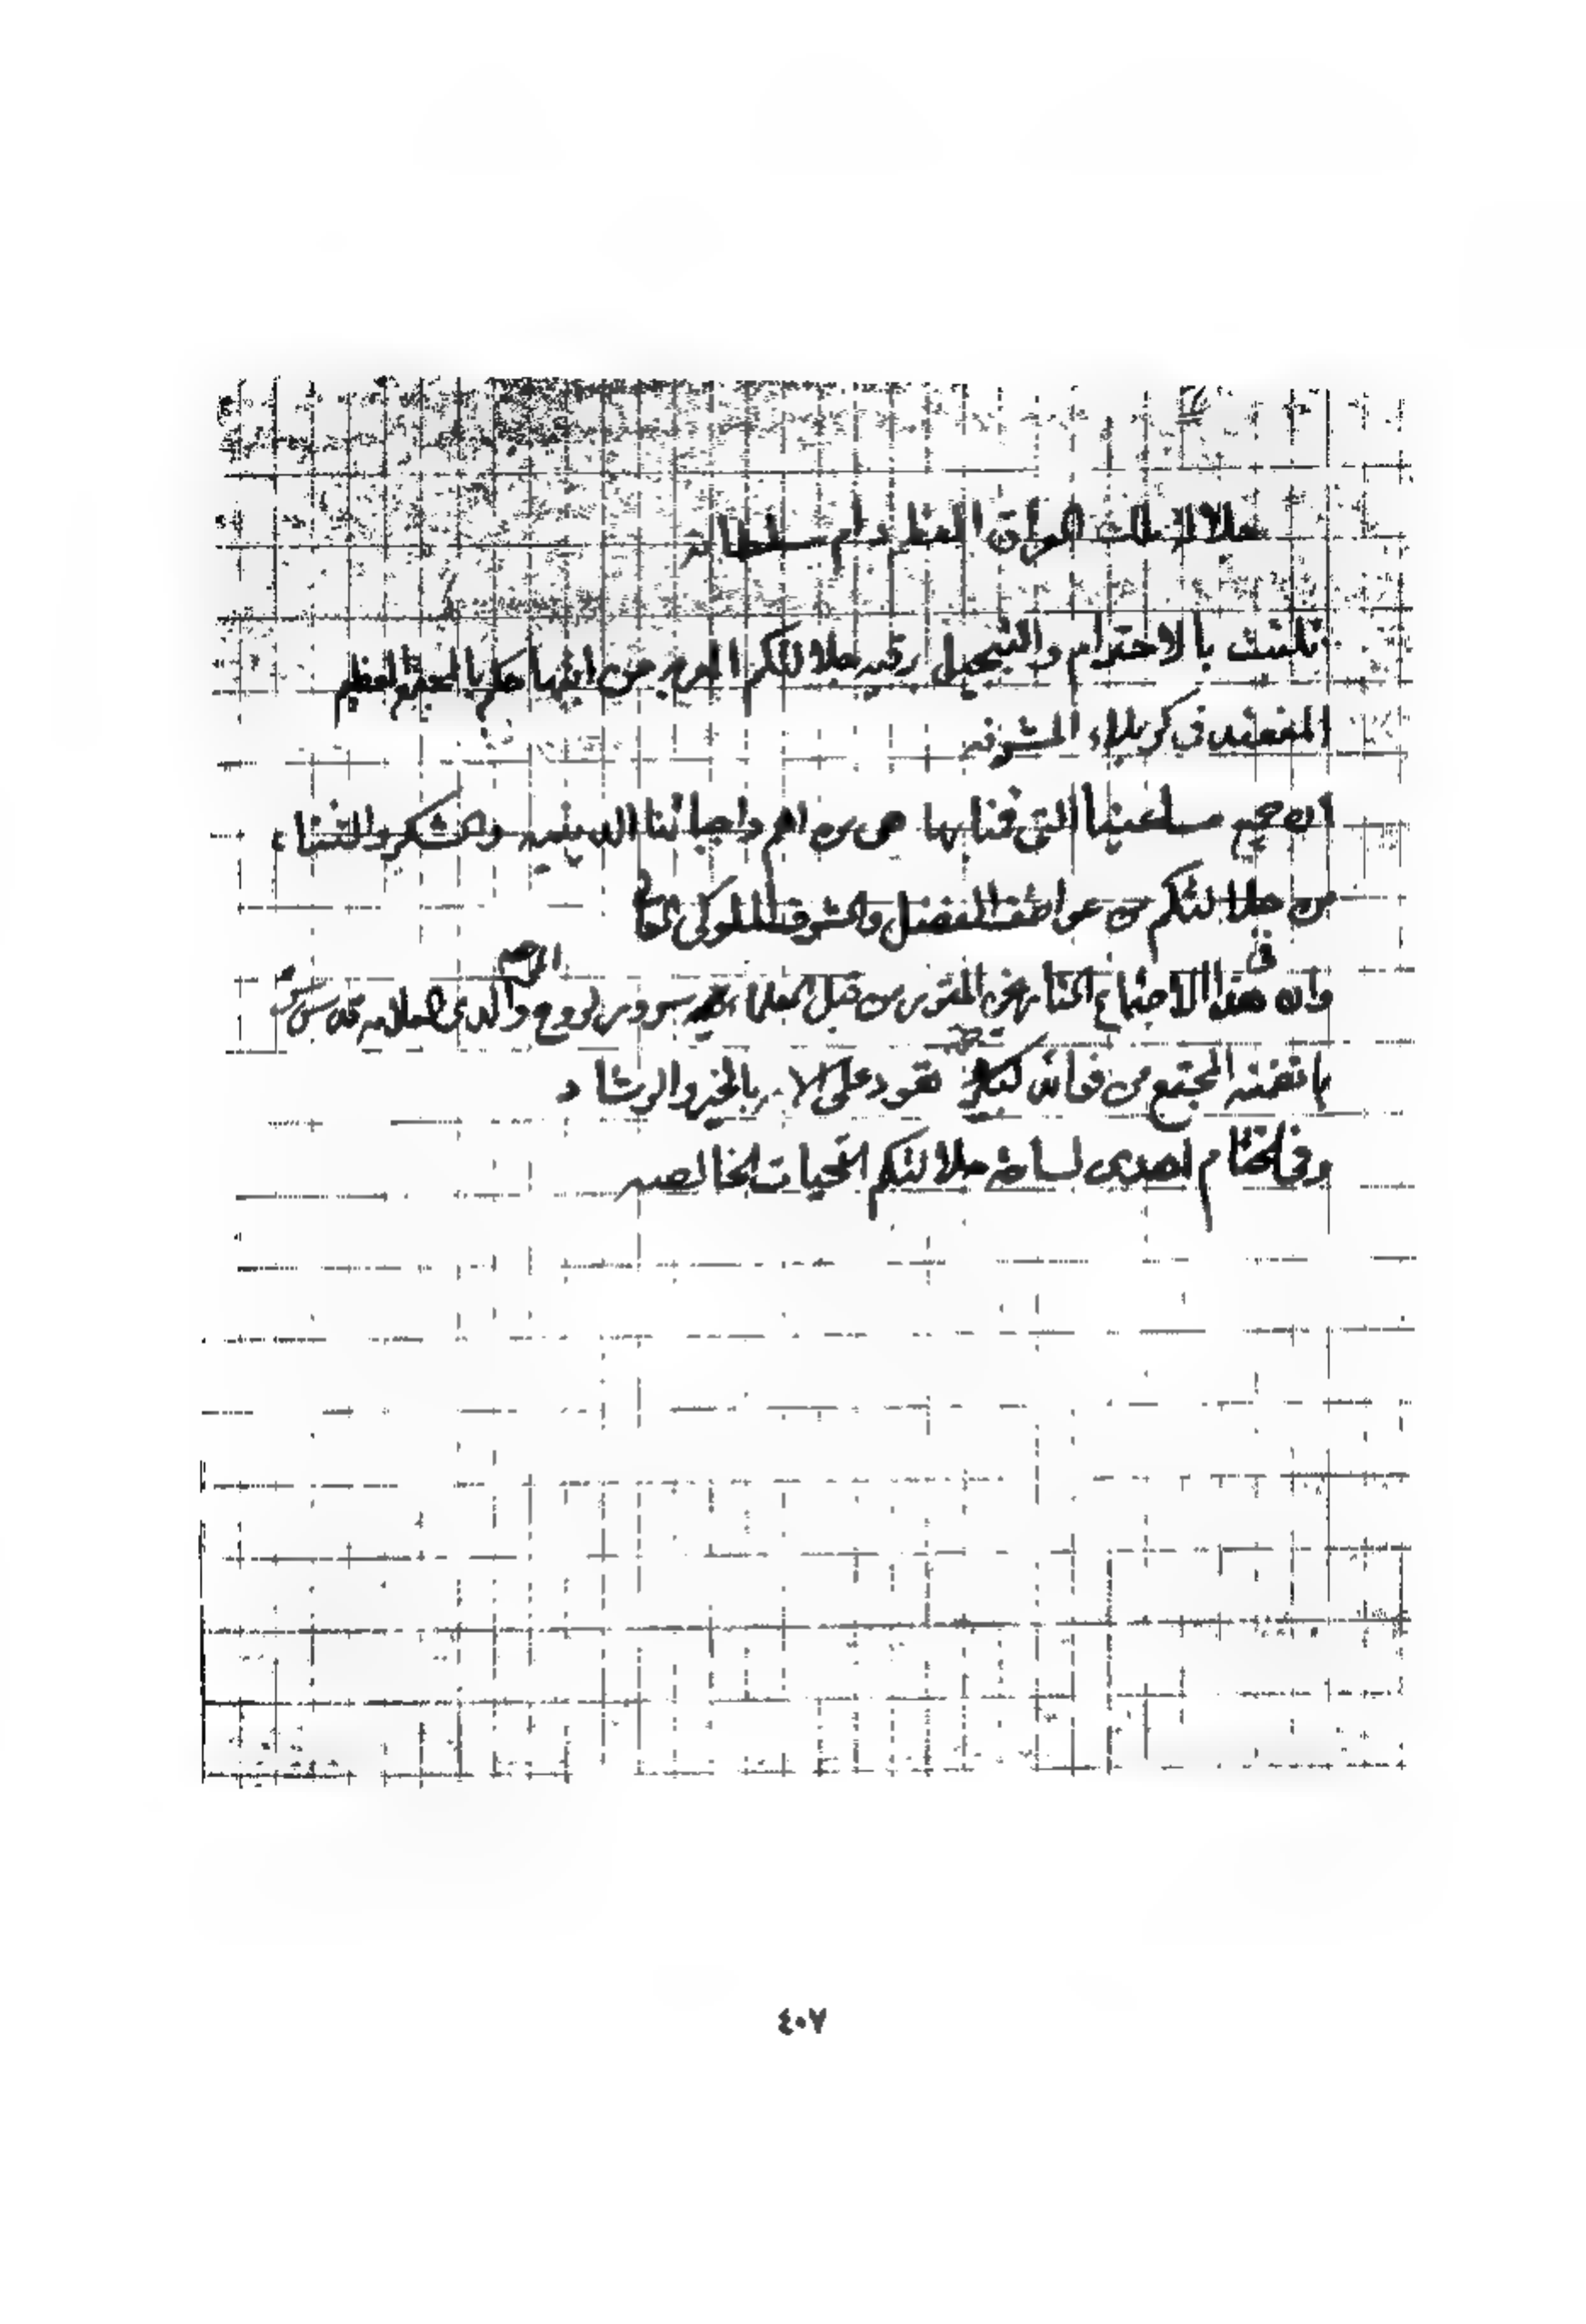 جلالة ملك العراق المعظم دام سلطانه
تلقيت بالاحترام والتبجيل برقيه جلالتكم المعربه عن ابتهاجكم بالمجتمع العظيم
المنعقد في كربلاء المشرفه
ان جميع مساعينا التي قمنا بها هي من اهم واجباتنا الدينيه والشكر والثناء
من جلالتكم من عواطف الفضل والشرف الملوكي
وان في هذا الاجتماع التاريخي المقرر من قبل العلماء سرور لروح والدي المرحم العلامه
بما تضمنه المجتمع من فوائد تعود على بالخير والرشاد
وفي الختام اهدى لساحة جلالتكم التحيات الخالصه
٤٠٧